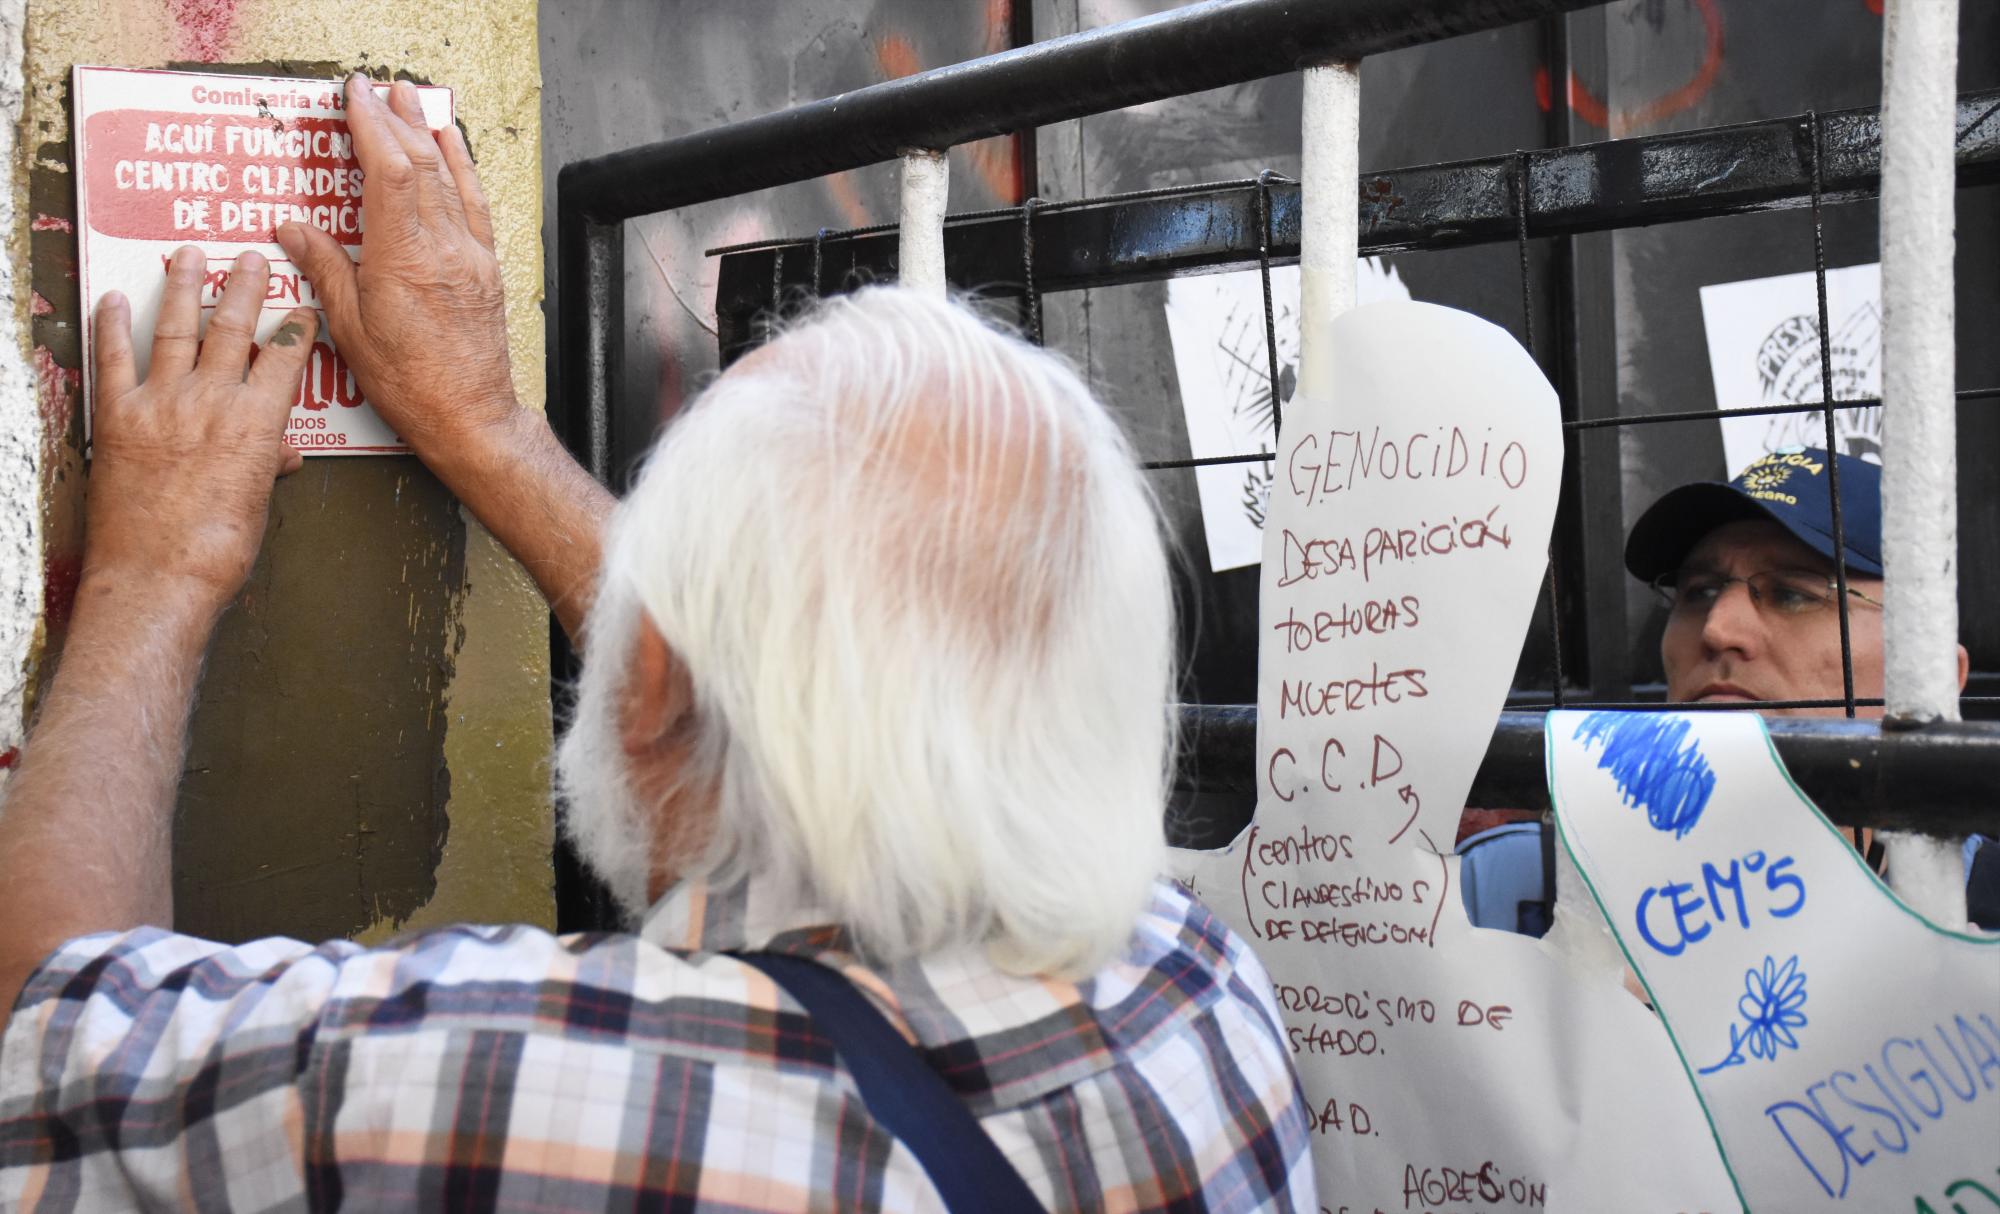 Comisaría 4t
AQUÍ FUNCION
CENTRO CLANDES
DE DETENCIÓ
IDOS
RECIDOS
POLICIA
NEGRO
GENOCIDIO
DESAPARICIÓN
TORTURAS
MUERTES
C.C.D
(centros
CLANDESTINOS
DE DETENCION)
ERRORISMO DE
STADO.
DAD.
AGRESION
CEM N°5
DESIGUAL